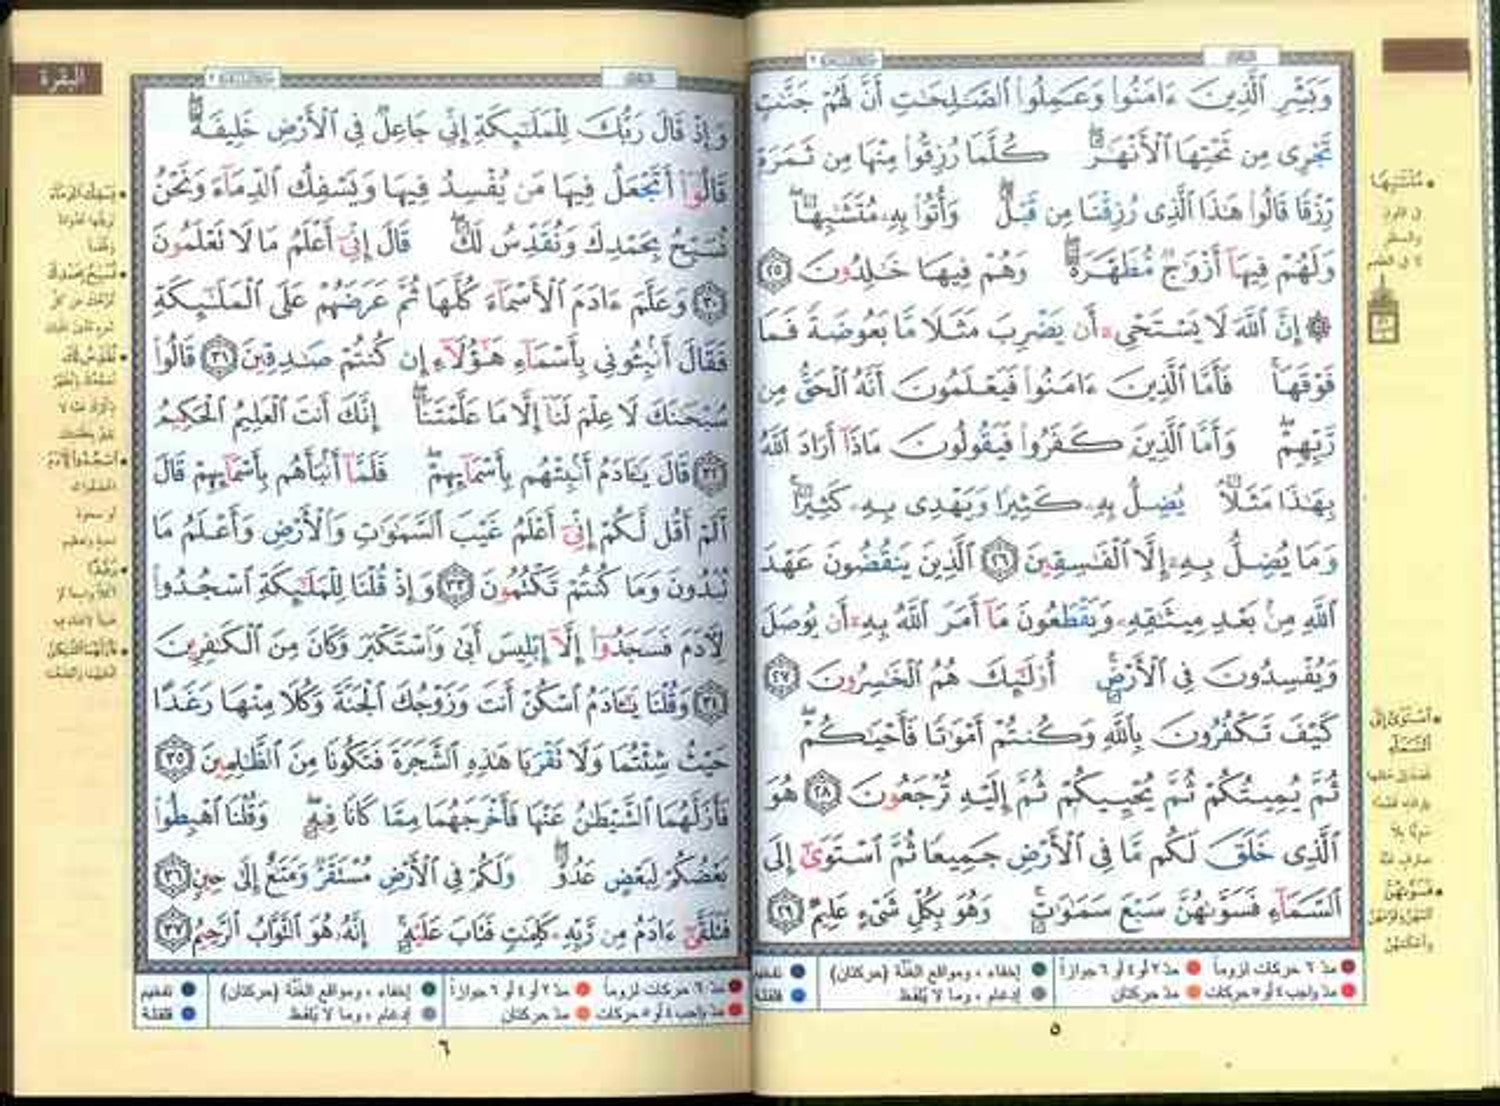 وَبَشِّرِ ٱلَّذِينَ ءَامَنُوا۟ وَعَمِلُوا۟ ٱلصَّٰلِحَٰتِ أَنَّ لَهُمْ جَنَّٰتٍ
تَجْرِى مِن تَحْتِهَا ٱلْأَنْهَٰرُ كُلَّمَا رُزِقُوا۟ مِنْهَا مِن ثَمَرَةٍ
رِّزْقًا قَالُوا۟ هَٰذَا ٱلَّذِى رُزِقْنَا مِن قَبْلُ وَأُتُوا۟ بِهِۦ مُتَشَٰبِهًا
وَلَهُمْ فِيهَآ أَزْوَٰجٌ مُّطَهَّرَةٌ وَهُمْ فِيهَا خَٰلِدُونَ ﴿٢٥﴾
۞ إِنَّ ٱللَّهَ لَا يَسْتَحْىِۦٓ أَن يَضْرِبَ مَثَلًا مَّا بَعُوضَةً فَمَا
فَوْقَهَا فَأَمَّا ٱلَّذِينَ ءَامَنُوا۟ فَيَعْلَمُونَ أَنَّهُ ٱلْحَقُّ مِن
رَّبِّهِمْ وَأَمَّا ٱلَّذِينَ كَفَرُوا۟ فَيَقُولُونَ مَاذَآ أَرَادَ ٱللَّهُ
بِهَٰذَا مَثَلًا يُضِلُّ بِهِۦ كَثِيرًا وَيَهْدِى بِهِۦ كَثِيرًا
وَمَا يُضِلُّ بِهِۦٓ إِلَّا ٱلْفَٰسِقِينَ ﴿٢٦﴾ ٱلَّذِينَ يَنقُضُونَ عَهْدَ
ٱللَّهِ مِنۢ بَعْدِ مِيثَٰقِهِۦ وَيَقْطَعُونَ مَآ أَمَرَ ٱللَّهُ بِهِۦٓ أَن يُوصَلَ
وَيُفْسِدُونَ فِى ٱلْأَرْضِ أُو۟لَٰٓئِكَ هُمُ ٱلْخَٰسِرُونَ ﴿٢٧﴾
كَيْفَ تَكْفُرُونَ بِٱللَّهِ وَكُنتُمْ أَمْوَٰتًا فَأَحْيَٰكُمْ
ثُمَّ يُمِيتُكُمْ ثُمَّ يُحْيِيكُمْ ثُمَّ إِلَيْهِ تُرْجَعُونَ ﴿٢٨﴾ هُوَ
ٱلَّذِى خَلَقَ لَكُم مَّا فِى ٱلْأَرْضِ جَمِيعًا ثُمَّ ٱسْتَوَىٰٓ إِلَى
ٱلسَّمَآءِ فَسَوَّىٰهُنَّ سَبْعَ سَمَٰوَٰتٍ وَهُوَ بِكُلِّ شَىْءٍ عَلِيمٌ ﴿٢٩﴾
مُتَشَٰبِهًا
ٱسْتَوَىٰٓ إِلَى
ٱلسَّمَآءِ
فَسَوَّىٰهُنَّ
مدّ ٦ حركات لزوماً مدّ ٢ أو ٤ أو ٦ جوازاً إخفاء، ومواقع الغنّة (حركتان) تفخيم
مدّ واجب ٤ أو ٥ حركات مدّ حركتان إدغام، وما لا يُلفَظ قلقلة
٥
البقرة
وَإِذْ قَالَ رَبُّكَ لِلْمَلَٰٓئِكَةِ إِنِّى جَاعِلٌ فِى ٱلْأَرْضِ خَلِيفَةً
قَالُوٓا۟ أَتَجْعَلُ فِيهَا مَن يُفْسِدُ فِيهَا وَيَسْفِكُ ٱلدِّمَآءَ وَنَحْنُ
نُسَبِّحُ بِحَمْدِكَ وَنُقَدِّسُ لَكَ قَالَ إِنِّىٓ أَعْلَمُ مَا لَا تَعْلَمُونَ
﴿٣٠﴾ وَعَلَّمَ ءَادَمَ ٱلْأَسْمَآءَ كُلَّهَا ثُمَّ عَرَضَهُمْ عَلَى ٱلْمَلَٰٓئِكَةِ
فَقَالَ أَنۢبِـُٔونِى بِأَسْمَآءِ هَٰٓؤُلَآءِ إِن كُنتُمْ صَٰدِقِينَ ﴿٣١﴾ قَالُوا۟
سُبْحَٰنَكَ لَا عِلْمَ لَنَآ إِلَّا مَا عَلَّمْتَنَآ إِنَّكَ أَنتَ ٱلْعَلِيمُ ٱلْحَكِيمُ
﴿٣٢﴾ قَالَ يَٰٓـَٔادَمُ أَنۢبِئْهُم بِأَسْمَآئِهِمْ فَلَمَّآ أَنۢبَأَهُم بِأَسْمَآئِهِمْ قَالَ
أَلَمْ أَقُل لَّكُمْ إِنِّىٓ أَعْلَمُ غَيْبَ ٱلسَّمَٰوَٰتِ وَٱلْأَرْضِ وَأَعْلَمُ مَا
تُبْدُونَ وَمَا كُنتُمْ تَكْتُمُونَ ﴿٣٣﴾ وَإِذْ قُلْنَا لِلْمَلَٰٓئِكَةِ ٱسْجُدُوا۟
لِـَٔادَمَ فَسَجَدُوٓا۟ إِلَّآ إِبْلِيسَ أَبَىٰ وَٱسْتَكْبَرَ وَكَانَ مِنَ ٱلْكَٰفِرِينَ
﴿٣٤﴾ وَقُلْنَا يَٰٓـَٔادَمُ ٱسْكُنْ أَنتَ وَزَوْجُكَ ٱلْجَنَّةَ وَكُلَا مِنْهَا رَغَدًا
حَيْثُ شِئْتُمَا وَلَا تَقْرَبَا هَٰذِهِ ٱلشَّجَرَةَ فَتَكُونَا مِنَ ٱلظَّٰلِمِينَ ﴿٣٥﴾
فَأَزَلَّهُمَا ٱلشَّيْطَٰنُ عَنْهَا فَأَخْرَجَهُمَا مِمَّا كَانَا فِيهِ وَقُلْنَا ٱهْبِطُوا۟
بَعْضُكُمْ لِبَعْضٍ عَدُوٌّ وَلَكُمْ فِى ٱلْأَرْضِ مُسْتَقَرٌّ وَمَتَٰعٌ إِلَىٰ حِينٍ ﴿٣٦﴾
فَتَلَقَّىٰٓ ءَادَمُ مِن رَّبِّهِۦ كَلِمَٰتٍ فَتَابَ عَلَيْهِ إِنَّهُۥ هُوَ ٱلتَّوَّابُ ٱلرَّحِيمُ ﴿٣٧﴾
مدّ ٦ حركات لزوماً مدّ ٢ أو ٤ أو ٦ جوازاً إخفاء، ومواقع الغنّة (حركتان) تفخيم
مدّ واجب ٤ أو ٥ حركات مدّ حركتان إدغام، وما لا يُلفَظ قلقلة
٦